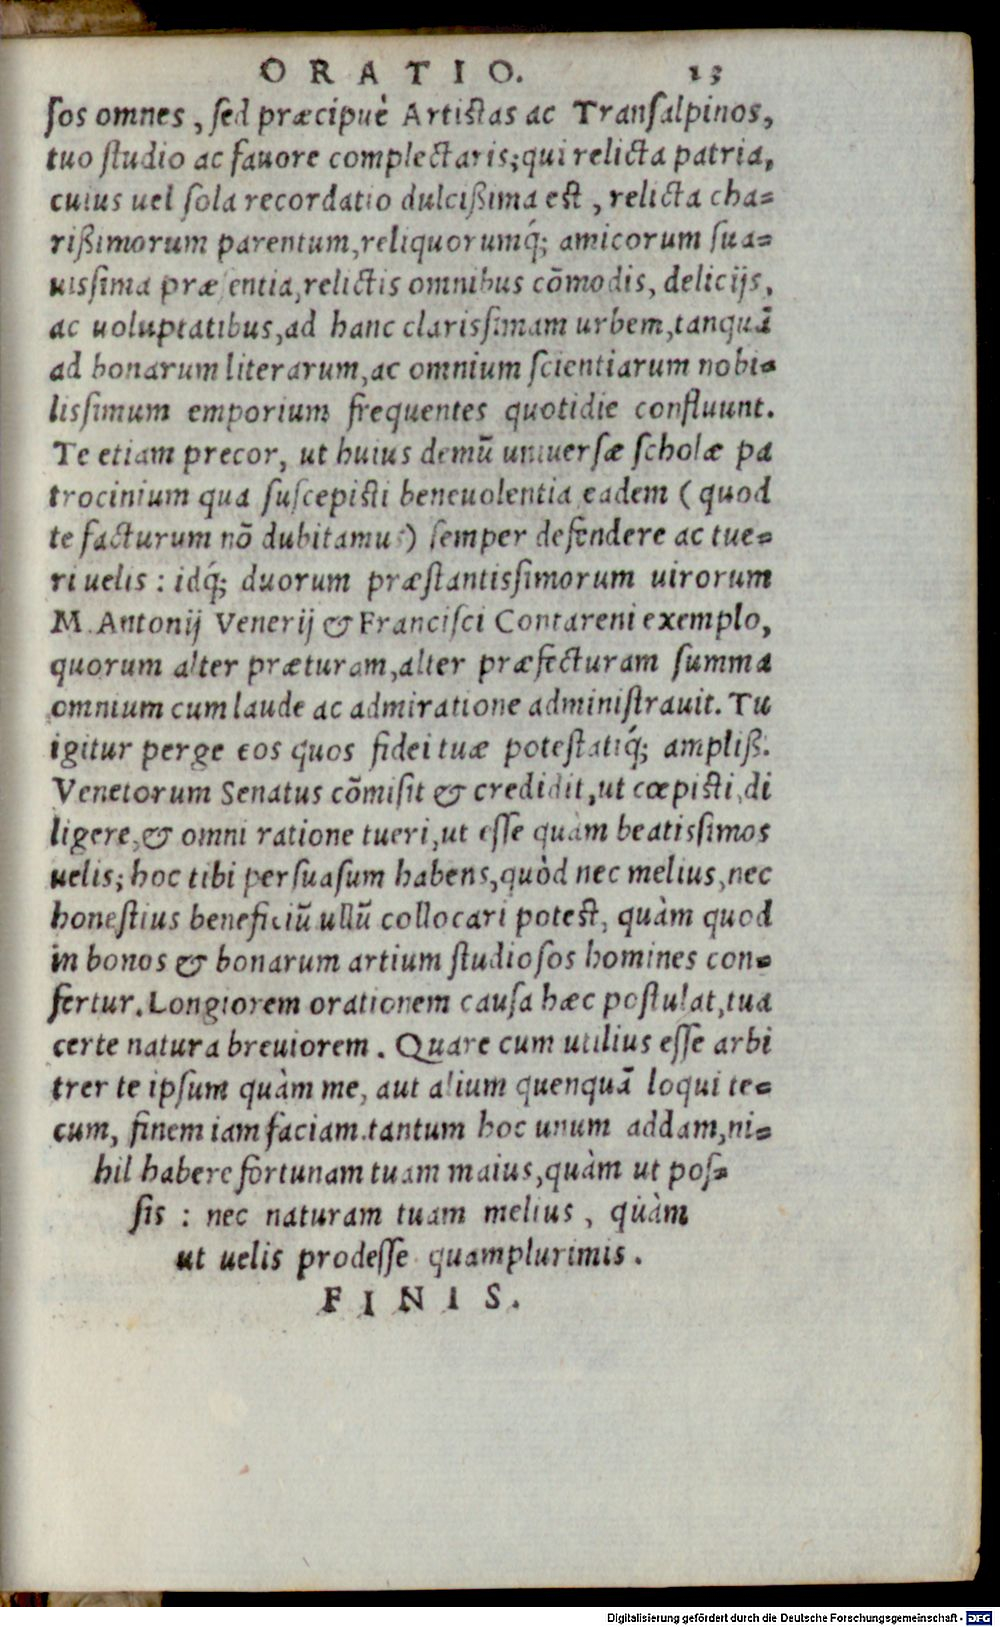 ORATIO. 13
sos omnes, sed præcipuè Artistas ac Transalpinos,
tuo studio ac fauore complectaris; qui relicta patria,
cuius uel sola recordatio dulcißima est, relicta cha=
rißimorum parentum, reliquorumq́; amicorum sua=
uissima præsentia, relictis omnibus cōmodis, delicijs,
ac uoluptatibus, ad hanc clarissimam urbem, tanquā
ad bonarum literarum, ac omnium scientiarum nobi=
lissimum emporium frequentes quotidie confluunt.
Te etiam precor, ut huius demū uniuersæ scholæ pa
trocinium qua suscepisti beneuolentia eadem (quod
te facturum nō dubitamus) semper defendere ac tue=
ri uelis: idq́; duorum præstantissimorum uirorum
M. Antonij Venerij & Francisci Contareni exemplo,
quorum alter præturam, alter præfecturam summa
omnium cum laude ac admiratione administrauit. Tu
igitur perge eos quos fidei tuæ potestatiq́; ampliß.
Venetorum Senatus cōmisit & credidit, ut cœpisti, di
ligere, & omni ratione tueri, ut esse quàm beatissimos
uelis; hoc tibi persuasum habens, quòd nec melius, nec
honestius beneficiū ullū collocari potest, quàm quod
in bonos & bonarum artium studiosos homines con=
fertur. Longiorem orationem causa hæc postulat, tua
certe natura breuiorem. Quare cum utilius esse arbi
trer te ipsum quàm me, aut alium quenquā loqui te=
cum, finem iam faciam. tantum hoc unum addam, ni=
hil habere fortunam tuam maius, quàm ut pos=
sis: nec naturam tuam melius, quàm
ut uelis prodesse quamplurimis.
FINIS.
Digitalisierung gefördert durch die Deutsche Forschungsgemeinschaft - DFG